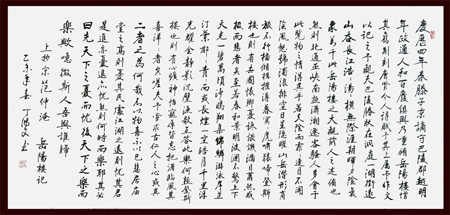 慶曆四年春滕子京謫守巴陵郡越明
年政通人和百廢俱興乃重修岳陽樓增
其舊制刻唐賢今人詩賦于其上屬予作文
以記之予觀夫巴陵勝狀在洞庭一湖銜遠
山吞長江浩浩湯湯橫無際涯朝暉夕陰氣
象萬千此岳陽樓之大觀前人之述備也
然則北通巫峽南極瀟湘遷客騷人多會于
此覽物之情得無異乎若夫霪雨霏霏連月不開
陰風怒號濁浪排空日星隱曜山岳潛形商
旅不行檣傾楫摧薄暮冥冥虎嘯猿啼登斯
樓也則有去國懷鄉憂讒畏譏滿目蕭然感
極而悲者矣至若春和景明波瀾不驚上下
天光一碧萬頃沙鷗翔集錦鱗游泳岸芷
汀蘭郁郁青青而或長煙一空皓月千里浮
光耀金靜影沉璧漁歌互答此樂何極登斯
樓也則有心曠神怡寵辱皆忘把酒臨風其
喜洋洋者矣嗟夫予嘗求古仁人之心或異
二者之為何哉不以物喜不以己悲居廟
堂之高則憂其民處江湖之遠則憂其君
是進亦憂退亦憂然則何時而樂耶其必
曰先天下之憂而憂後天下之樂而
樂歟噫微斯人吾與誰歸
范仲淹 岳陽樓記
乙未年春 丁